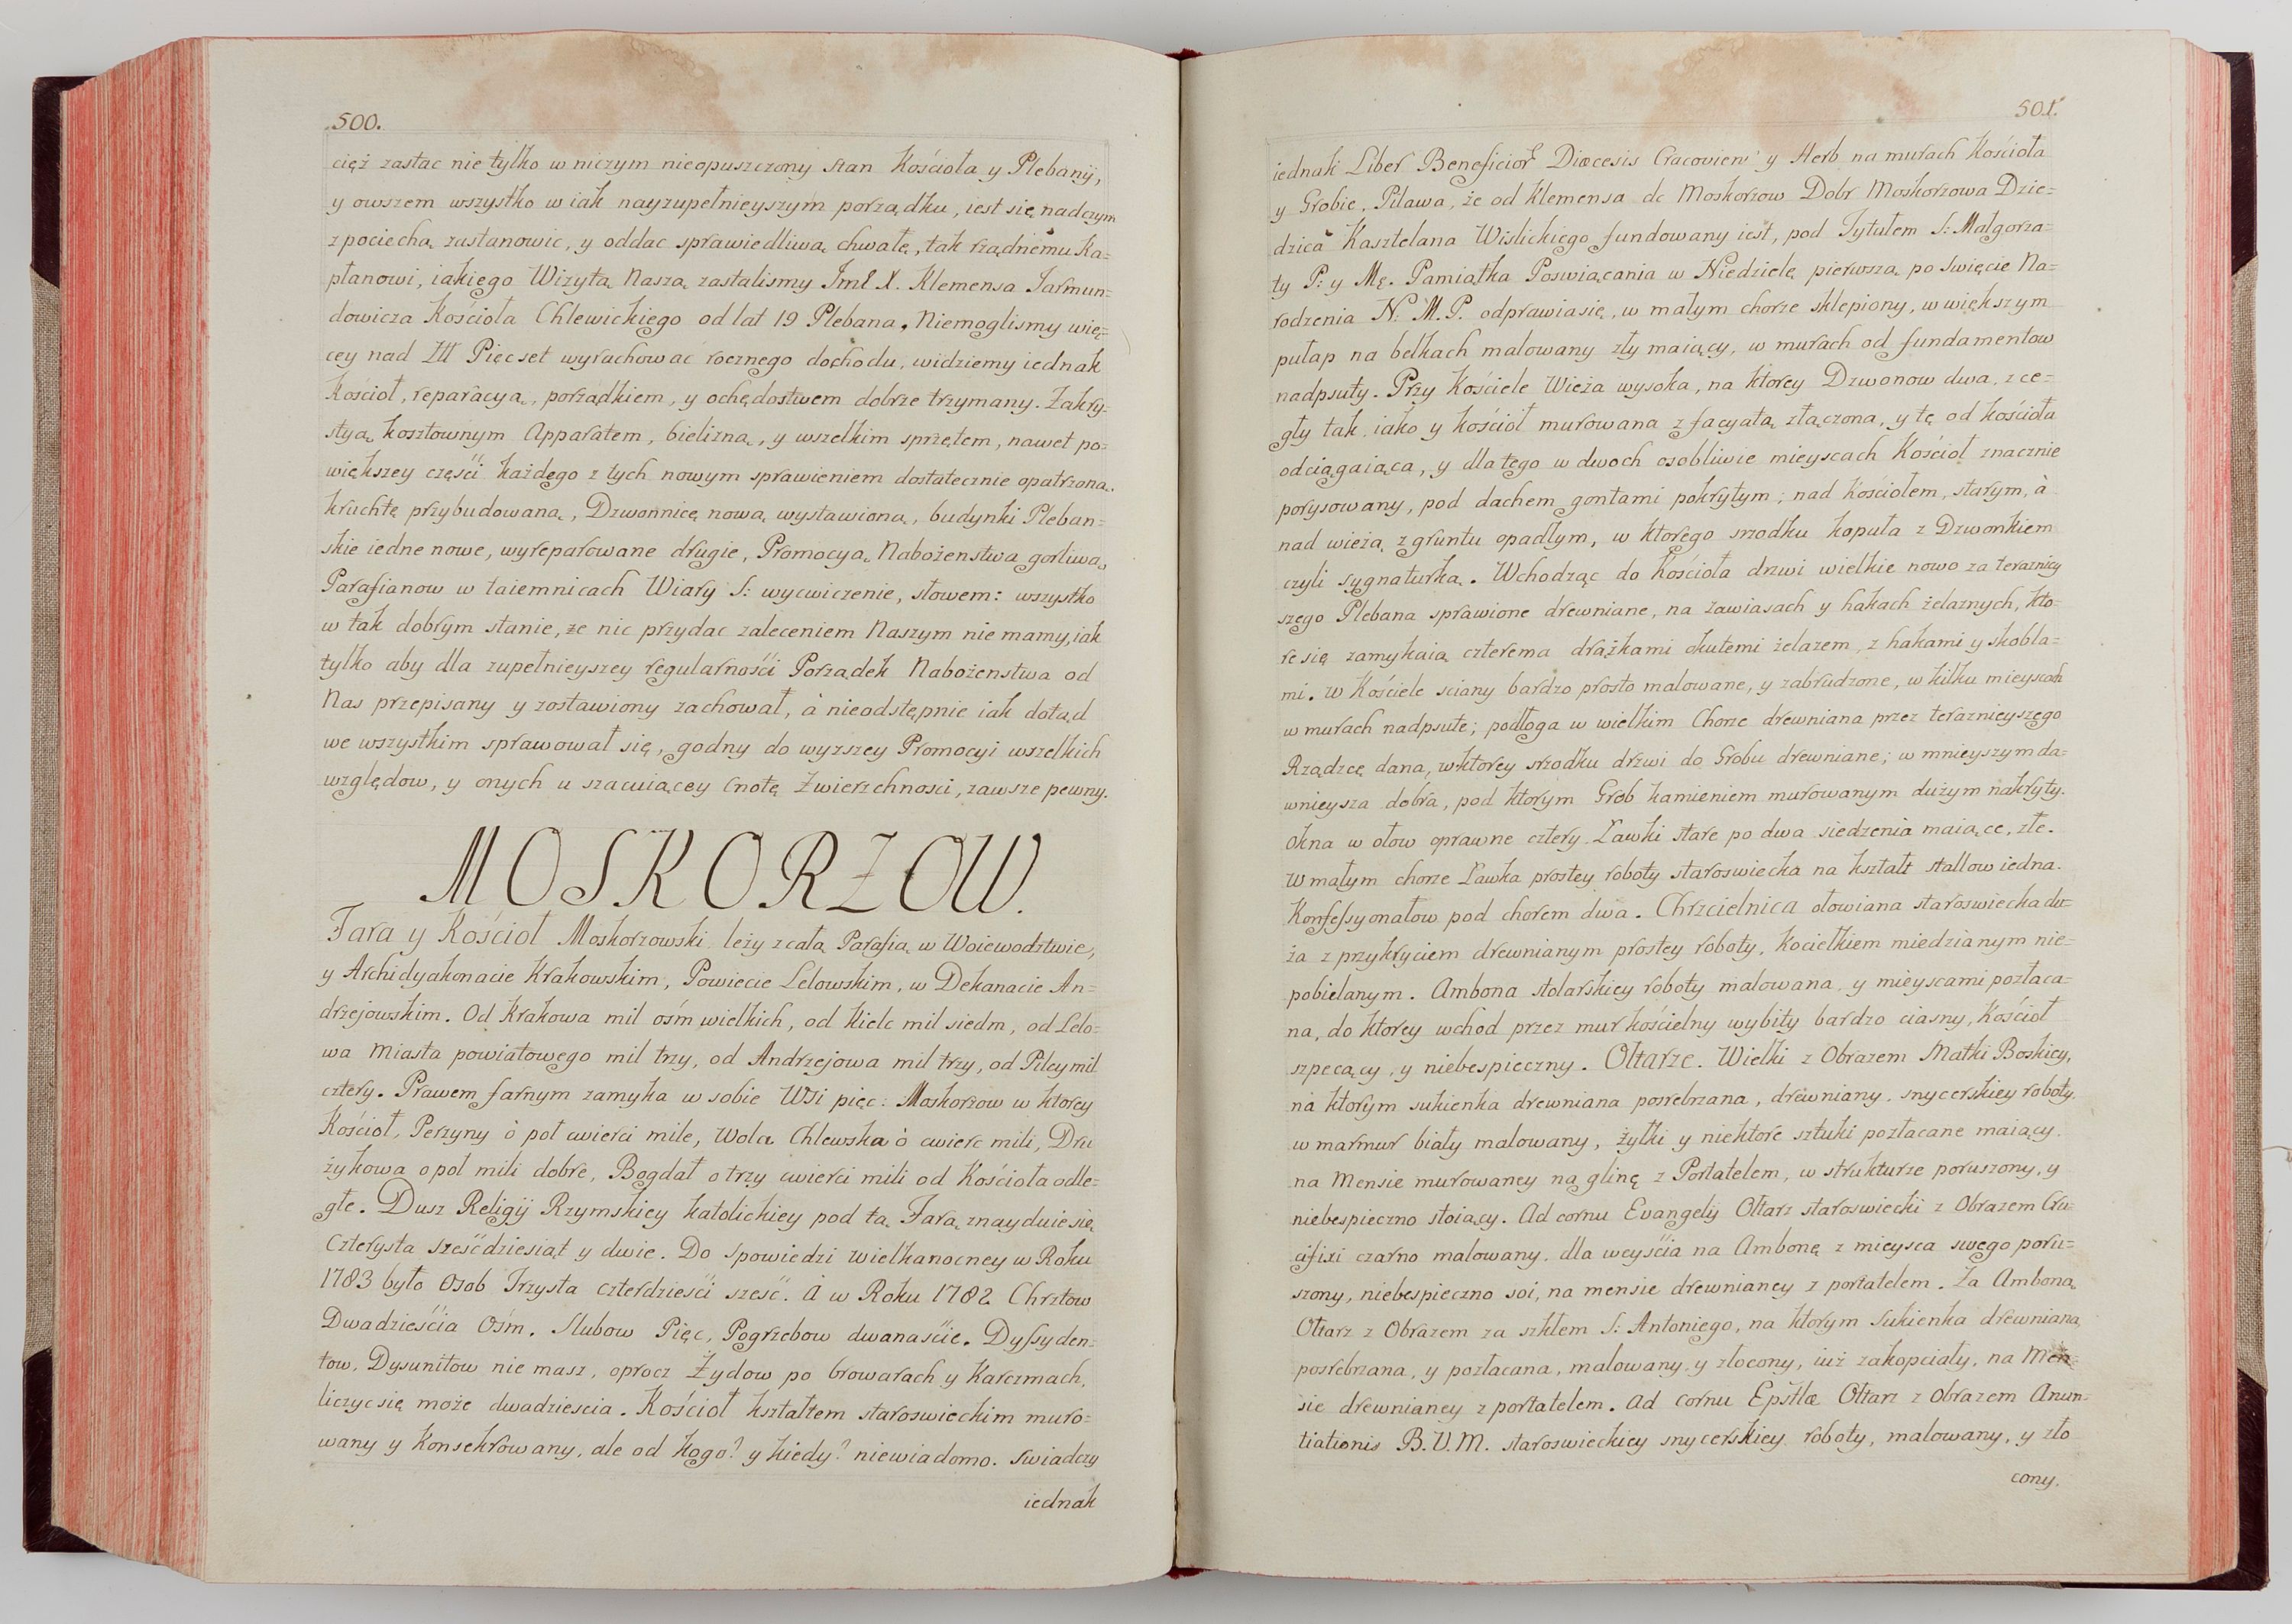 500.
cięż zastac nie tylko w niczym nieopuszczony stan Kościoła y Plebanÿ,
y owszem wszystko w iak nayzupełnieyszym porządku, iest się nad czym
z pociechą zastanowic, y oddac sprawiedliwą chwałę, tak rządnemu Ka=
płanowi, iakiego Wizytą Naszą zastalismy Jmć X. Klemensa Jarmun=
dowicza Kościoła Chlewickiego od lat 19 Plebana. Niemoglismy wię=
cey nad Pięcset wyrachować rocznego dochodu, widziemy iednak
Kościoł, reparacyą, porządkiem, y ochędostwem dobrze trzymany. Zakry=
styą kosztownym Apparatem, bielizną, y wszelkim sprzętem, nawet po=
większey częsći każdego z tych nowym sprawieniem dostatecznie opatrzoną.
kruchtę przybudowaną, Dzwonnicę nową wystawioną, budynki Pleban=
skie iedne nowe, wyreparowane drugie, Promocyą Nabożenstwa gorliwą,
Parafianow w taiemnicach Wiary S: wycwiczenie, słowem: wszystko
w tak dobrym stanie, że nic przydac zaleceniem Naszym nie mamy, iak
tylko aby dla zupełnieyszey regularnośći Porządek Nabożenstwa od
Nas przepisany y zostawiony zachował, à nieodstępnie iak dotąd
we wszystkim sprawował się, godny do wyzszey Promocyi wszelkich
względow, y onych u szacuiącey Cnotę Zwierzchnosci, zawsze pewny.
MOSKORZOW.
Fara y Kościoł Moskorzowski leży z całą Parafią w Woiewodztwie,
y Archidyakonacie Krakowskim, Powiecie Lelowskim, w Dekanacie An=
drzejowskim. Od Krakowa mil ośm wielkich, od Kielc mil siedm, od Lelo=
wa Miasta powiatowego mil trzy, od Andrzejowa mil trzy, od Pilcy mil
cztery. Prawem farnym zamyka w sobie Wsi pięc: Moskorzow w ktorey
Kościoł, Perzyny ò poł cwierci mile, Wola Chlewska ò cwierc mili, Dru
żykowa o poł mili dobre, Bogdał o trzy cwierci mili od Kościoła odle=
głe. Dusz Religÿ Rzymskiey katolickiey pod tą Farą znayduie się
czterysta sześćdziesiąt y dwie. Do Spowiedzi wielkanocney w Roku
1783 było Osob Trzysta czterdzieśći sześć. A w Roku 1782 Chrztow
Dwadzieśćia Ośm. Slubow Pięc, Pogrzebow dwanaśćie. Dyssyden=
tow, Dysunitow nie masz, oprocz Żydow po browarach y Karczmach,
liczyc się może dwadziescia. Kościoł kształtem staroswieckim muro=
wany y Konsekrowany, ale od kogo? y kiedy? niewiadomo. Swiadczy
iednak
501.
iednak Liber Beneficior Diœcesis Cracovien: y Herb na murach Kościoła
y Grobie, Pilawa, że od Klemensa de Moskorzow Dobr Moskorzowa Dzie=
dzica Kasztelana Wislickiego fundowany iest, pod Tytułem S: Małgorza=
ty P: y Mę. Pamiątka Poswiącania w Niedzielę pierwszą po Swięcie Na=
rodzenia N. M. P. odprawia się, w małym chorze sklepiony, w większym
pułap na belkach malowany zły maiący, w murach od fundamentow
nadpsuty. Przy Kościele Wieża wysoka, na ktorey Dzwonow dwa, z ce=
gły tak, iako y kościoł murowana z facyatą złączona, y tę od kościoła
odciągaiąca, y dla tego w dwoch osobliwie mieyscach Kościoł znacznie
porysowany, pod dachem gontami pokrytym; nad Kościołem, starym, à
nad wieżą z gruntu opadłym, w ktorego srzodku kopuła z Dzwonkiem
czyli sygnaturką. Wchodząc do Kościoła drzwi wielkie nowo za terazniey
szego Plebana sprawione drewniane, na zawiasach y hakach żelaznych, kto=
re się zamykaią czterema drążkami okutemi żelazem, z hakami y skobla=
mi. W Kościele sciany bardzo prosto malowane, y zabrudzone, w kilku mieyscach
w murach nadpsute; podłoga w wielkim Chorze drewniana przez teraznieyszego
Rządzcę dana, w ktorey srzodku drzwi do Grobu drewniane; w mnieyszym da=
wnieysza dobra, pod ktorym Grob kamieniem murowanym dużym nakryty.
Okna w ołow oprawne cztery. Ławki stare po dwa siedzenia maiące, złe.
W małym chorze Ławka prostey roboty staroswiecka na kształt stallow iedna.
Konfessyonałow pod chorem dwa. Chrzcielnica ołowiana staroswiecka du=
ża z przykryciem drewnianym prostey roboty, kociełkiem miedzianym nie=
pobielanym. Ambona stolarskiey roboty malowana, y mieyscami pozłaca=
na, do ktorey wchod przez mur kościelny wybity bardzo ciasny, Kościoł
szpecący, y niebespieczny. Ołtarze. Wielki z Obrazem Matki Boskiey,
na ktorym sukienka drewniana posrebrzana, drewniany, snycerskiey roboty,
w marmur biały malowany, żyłki y niektore sztuki pozłacane maiący.
na Mensie murowaney na glinę z Portatelem, w strukturze poruszony, y
niebespieczno stoiący. Ad cornu Evangelÿ Ołtarz staroswiecki z Obrazem Cru=
cifixi czarno malowany, dla weyśćia na Ambonę z mieysca swego poru=
szony, niebespieczno soi, na mensie drewnianey z portatelem. Za Amboną
Ołtarz z Obrazem za szkłem S: Antoniego, na ktorym Sukienka drewniana
posrebrzana, y pozłacana, malowany, y złocony, iuż zakopciały, na Men=
sie drewnianey z portatelem. Ad cornu Epśtlæ Ołtarz z Obrazem Anun=
tiationis B. V. M. staroswieckiey snycerskiey roboty, malowany, y zło
cony.